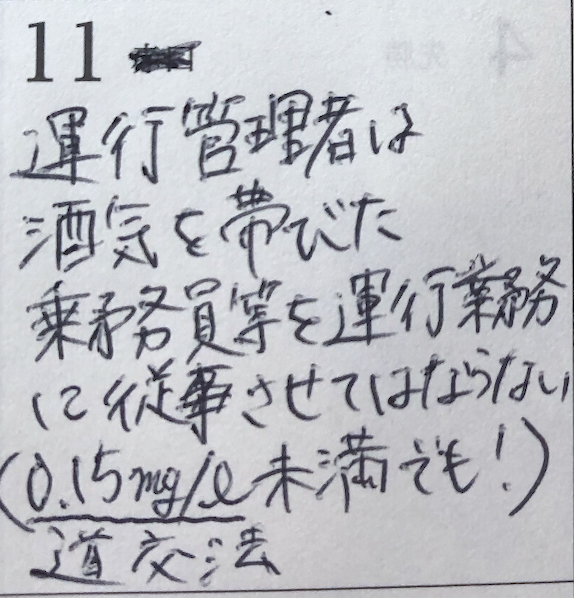 11
運行管理者は
酒気を帯びた
乗務員等を運行業務
に従事させてはならない
(0.15mg/l未満でも!)
道交法